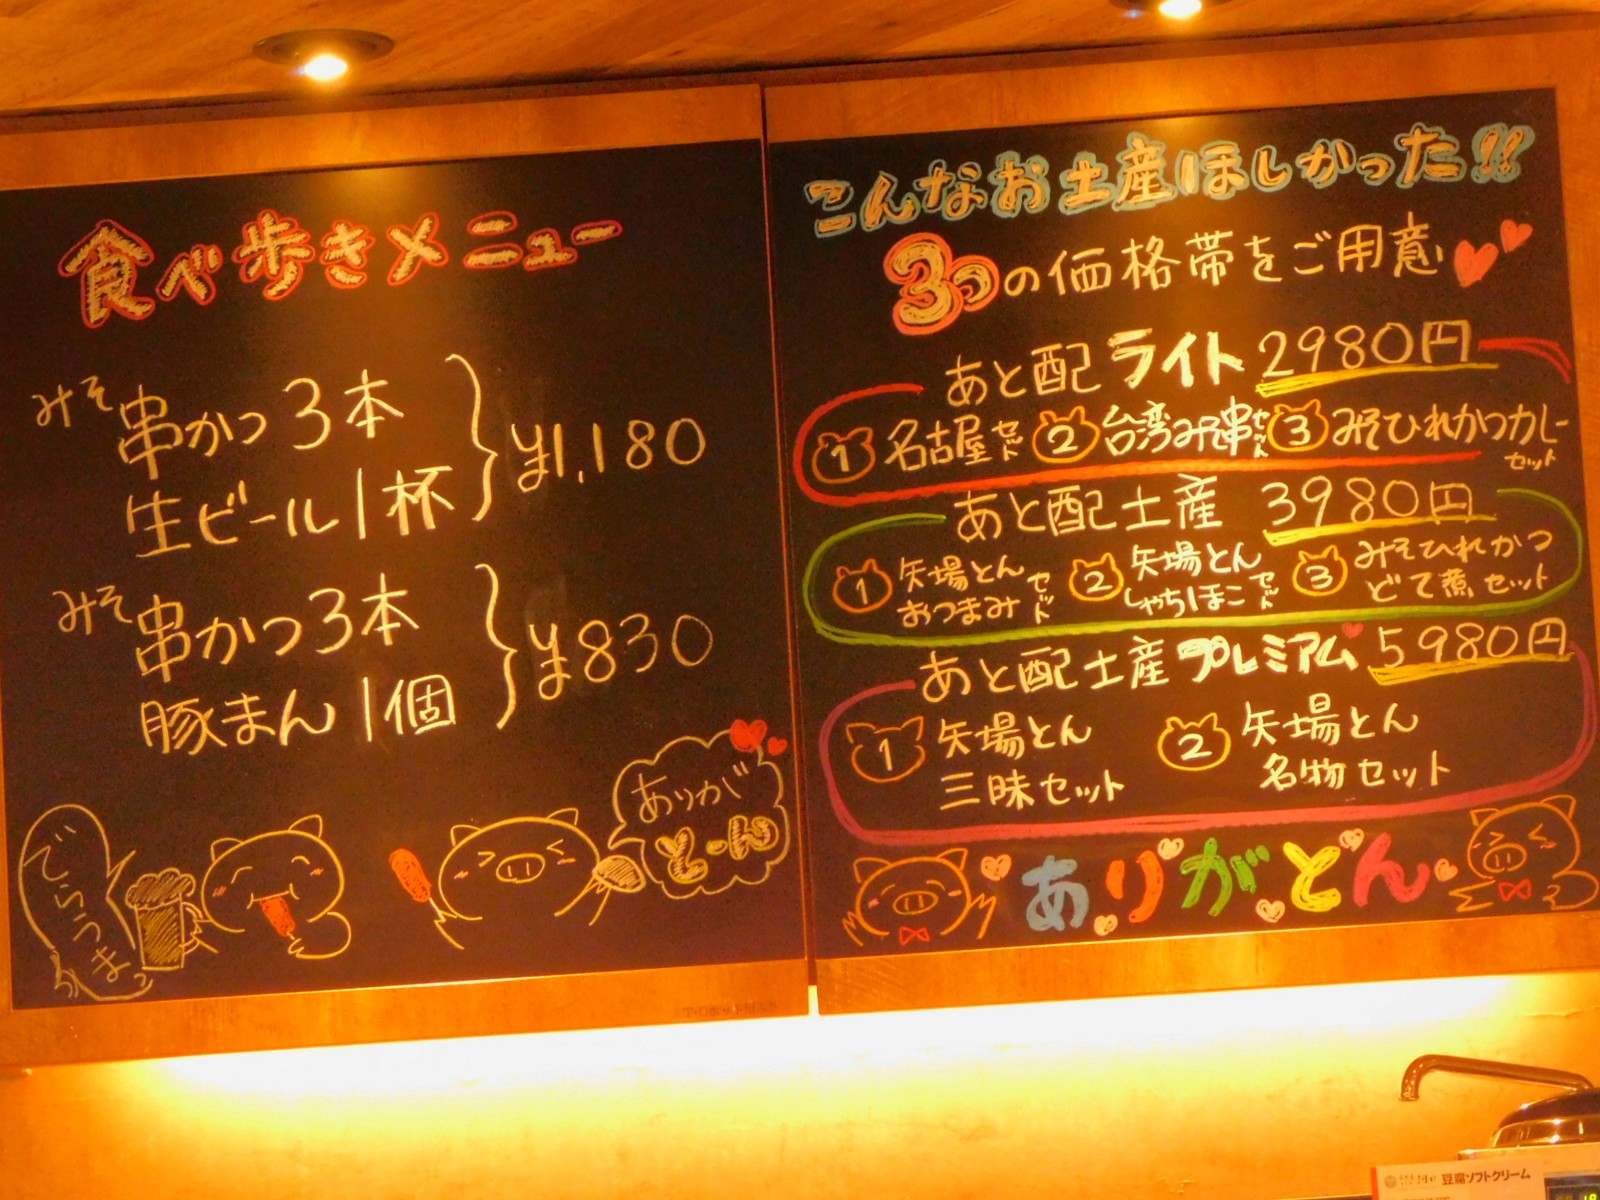 食べ歩きメニュー
みそ串かつ3本
生ビール1杯
¥1,180
みそ串かつ3本
豚まん1個
¥830
でらうまっ
ありが
とーん
こんなお土産ほしかった!!
3つの価格帯をご用意
あと配 ライト 2980円
1 名古屋セット 2 台湾みそ串セット 3 みそひれかつカレーセット
あと配土産 3980円
1 矢場とんおつまみセット 2 矢場とんしゃちほこセット 3 みそひれかつどて煮セット
あと配土産プレミアム 5980円
1 矢場とん三昧セット 2 矢場とん名物セット
ありがとん
豆腐ソフトクリーム